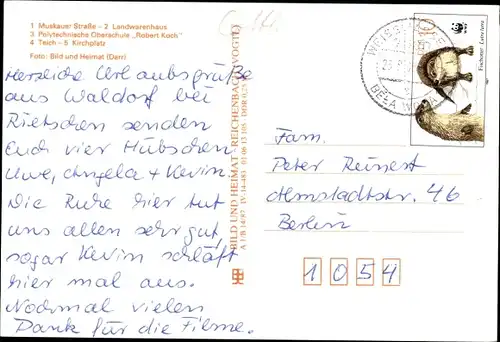 1 Muskauer Straße – 2 Landwarenhaus
3 Polytechnische Oberschule „Robert Koch"
4 Teich – 5 Kirchplatz
Foto: Bild und Heimat (Darr)
Herzliche Urlaubsgrüße
aus Waldorf bei
Rietschen senden
Euch vier Hübschen
Uwe, Angela + Kevin.
Die Ruhe hier tut
uns allen sehr gut,
sogar Kevin schläft
hier mal aus.
Nochmal vielen
Dank für die Filme.
BILD UND HEIMAT REICHENBACH (VOGTL)
A 1/B 14/87 IV-14-483 01 06 13 105 DDR 0,25
WEISSW
BELA WODA
Fischotter Lutra lutra
Fam.
Peter Reinert
Almstadtstr. 46
Berlin
1054